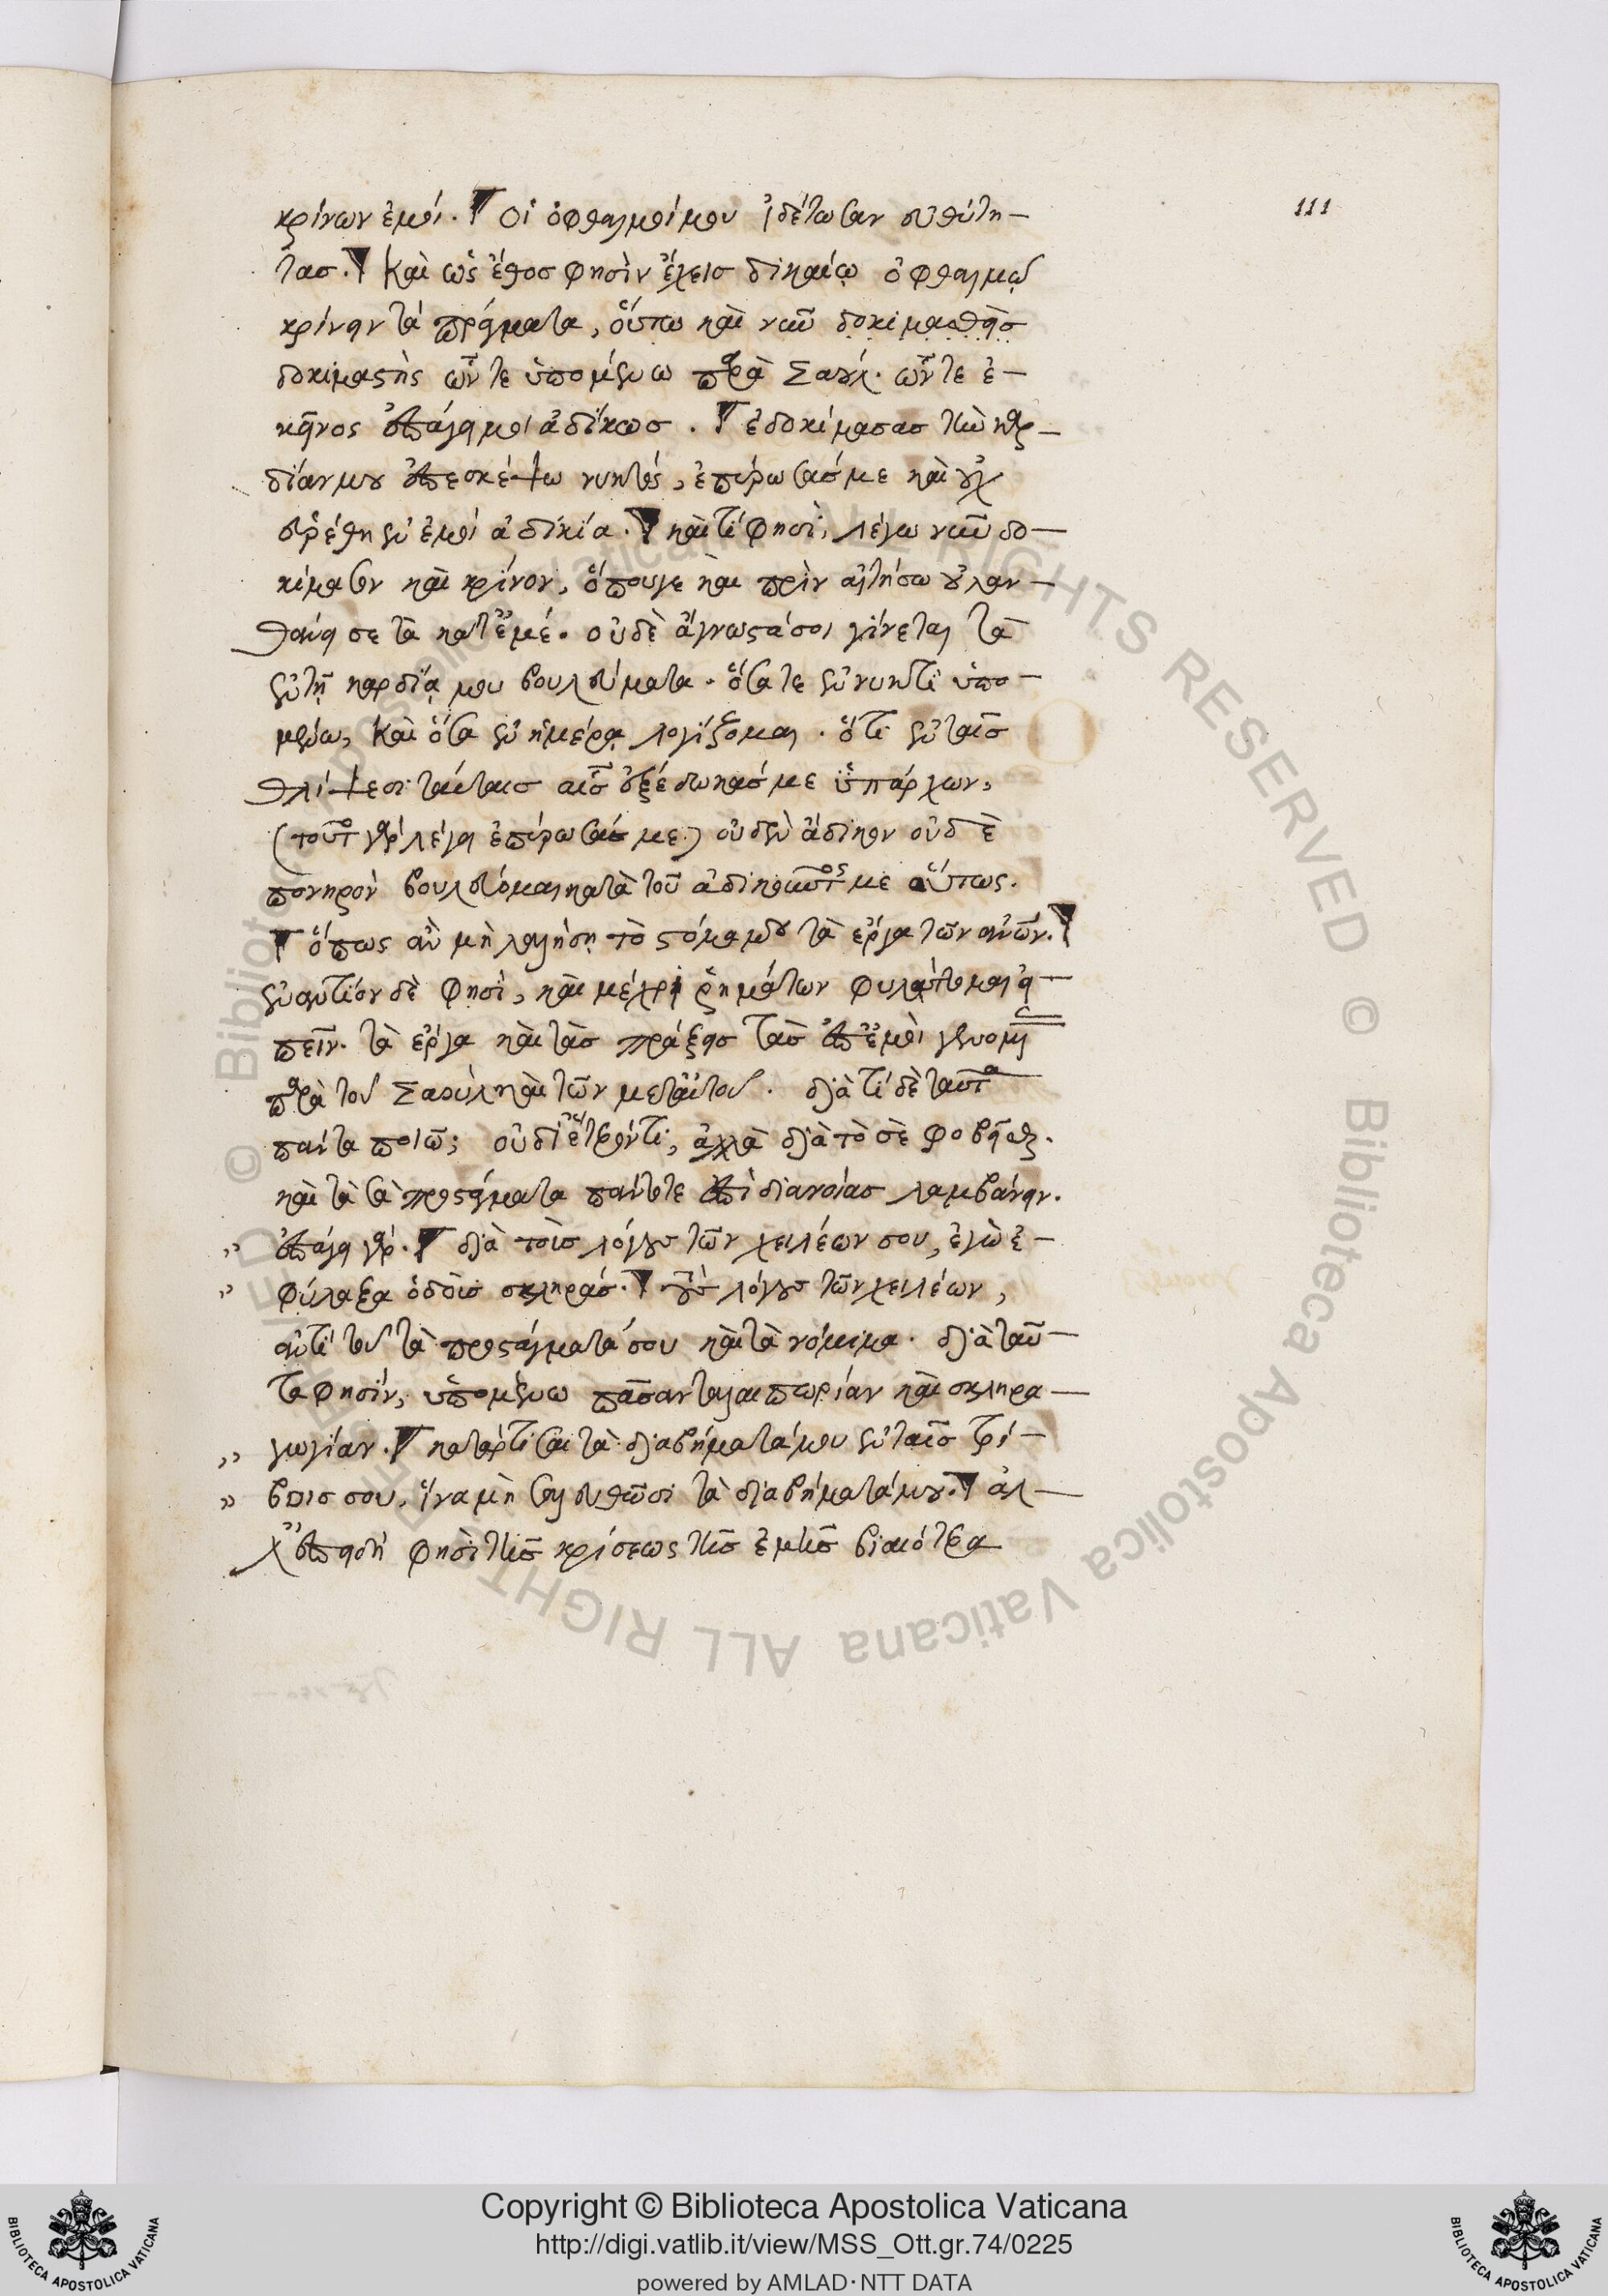 111
κρίνων ἐμοί. Οἱ ὀφθαλμοί μου ἰδέτωσαν εὐθύτη-
τας. Καὶ ὡς ἔθος φησὶν ἔχεις δικαίῳ ὀφθαλμῷ
κρίνειν τὰ πράγματα, οὕτω καὶ νῦν δοκιμασθεὶς
δοκιμαστὴς ὧν τε ὑπομένω παρὰ Σαούλ. ὧν τε ἐ-
κεῖνος ἐπάγει μοι ἀδίκως. ἐδοκίμασας τὴν καρ-
δίαν μου ἐπεσκέψω νυκτός, ἐπύρωσάς με καὶ οὐχ
εὑρέθη ἐν ἐμοὶ ἀδικία. καὶ τί φησὶ, λέγω νῦν δο-
κίμασον καὶ κρίνον, ὅπουγε καὶ πρὶν αἰτήσω οὐ λαν-
θάνει σε τὰ κατ' ἐμέ. οὐδὲ ἄγνωστά σοι γίνεται τὰ
ἐν τῇ καρδίᾳ μου βουλεύματα. ὅσα τε ἐν νυκτὶ ὑπο-
μένω, καὶ ὅσα ἐν ἡμέρᾳ λογίζομαι. ὅτι ἐν ταῖς
θλίψεσι ταύταις αἷς ἐξέδωκάς με ὑπάρχων,
(τοῦτο γὰρ λέγει ἐπύρωσάς με) οὐδὲν ἄδικον οὐδὲ
πονηρὸν βουλεύομαι κατὰ τοῦ ἀδικοῦντός με οὕτως.
ὅπως ἂν μὴ λαλήσῃ τὸ στόμα μου τὰ ἔργα τῶν ἀνῶν.
ἐναντίον δὲ φησὶ, καὶ μέχρι ῥημάτων φυλάττομαι εἰ-
πεῖν. τὰ ἔργα καὶ τὰς πράξεις τὰς ἐπ' ἐμοὶ γενομέ
παρὰ τοῦ Σαοὺλ καὶ τῶν μετ' αὐτοῦ. διὰ τί δὲ ταῦτα
πάντα ποιῶ; οὐ δι' ἕτερόν τι, ἀλλὰ διὰ τὸ σὲ φοβεῖσθαι.
καὶ τὰ σὰ προστάγματα πάντοτε ἐπὶ διανοίας λαμβάνειν.
" ἐπάγει γάρ. διὰ τοὺς λόγους τῶν χειλέων σου, ἐγὼ ἐ-
" φύλαξα ὁδοὺς σκληράς. τοὺς λόγους τῶν χειλέων,
ἀντὶ τοῦ τὰ προστάγματά σου καὶ τὰ νόμιμα. διὰ ταῦ-
τα φησίν, ὑπομένω πᾶσαν ταλαιπωρίαν καὶ σκληρα-
" γωγίαν. κατάρτισαι τὰ διαβήματά μου ἐν ταῖς τρί-
" βοις σου, ἵνα μὴ σαλευθῶσι τὰ διαβήματά μου. ἀλ-
λ' ἐπειδή φησὶ τῆς κρίσεως τῆς ἐμῆς βιαιότερα
Copyright © Biblioteca Apostolica Vaticana
http://digi.vatlib.it/view/MSS_Ott.gr.74/0225
powered by AMLAD·NTT DATA